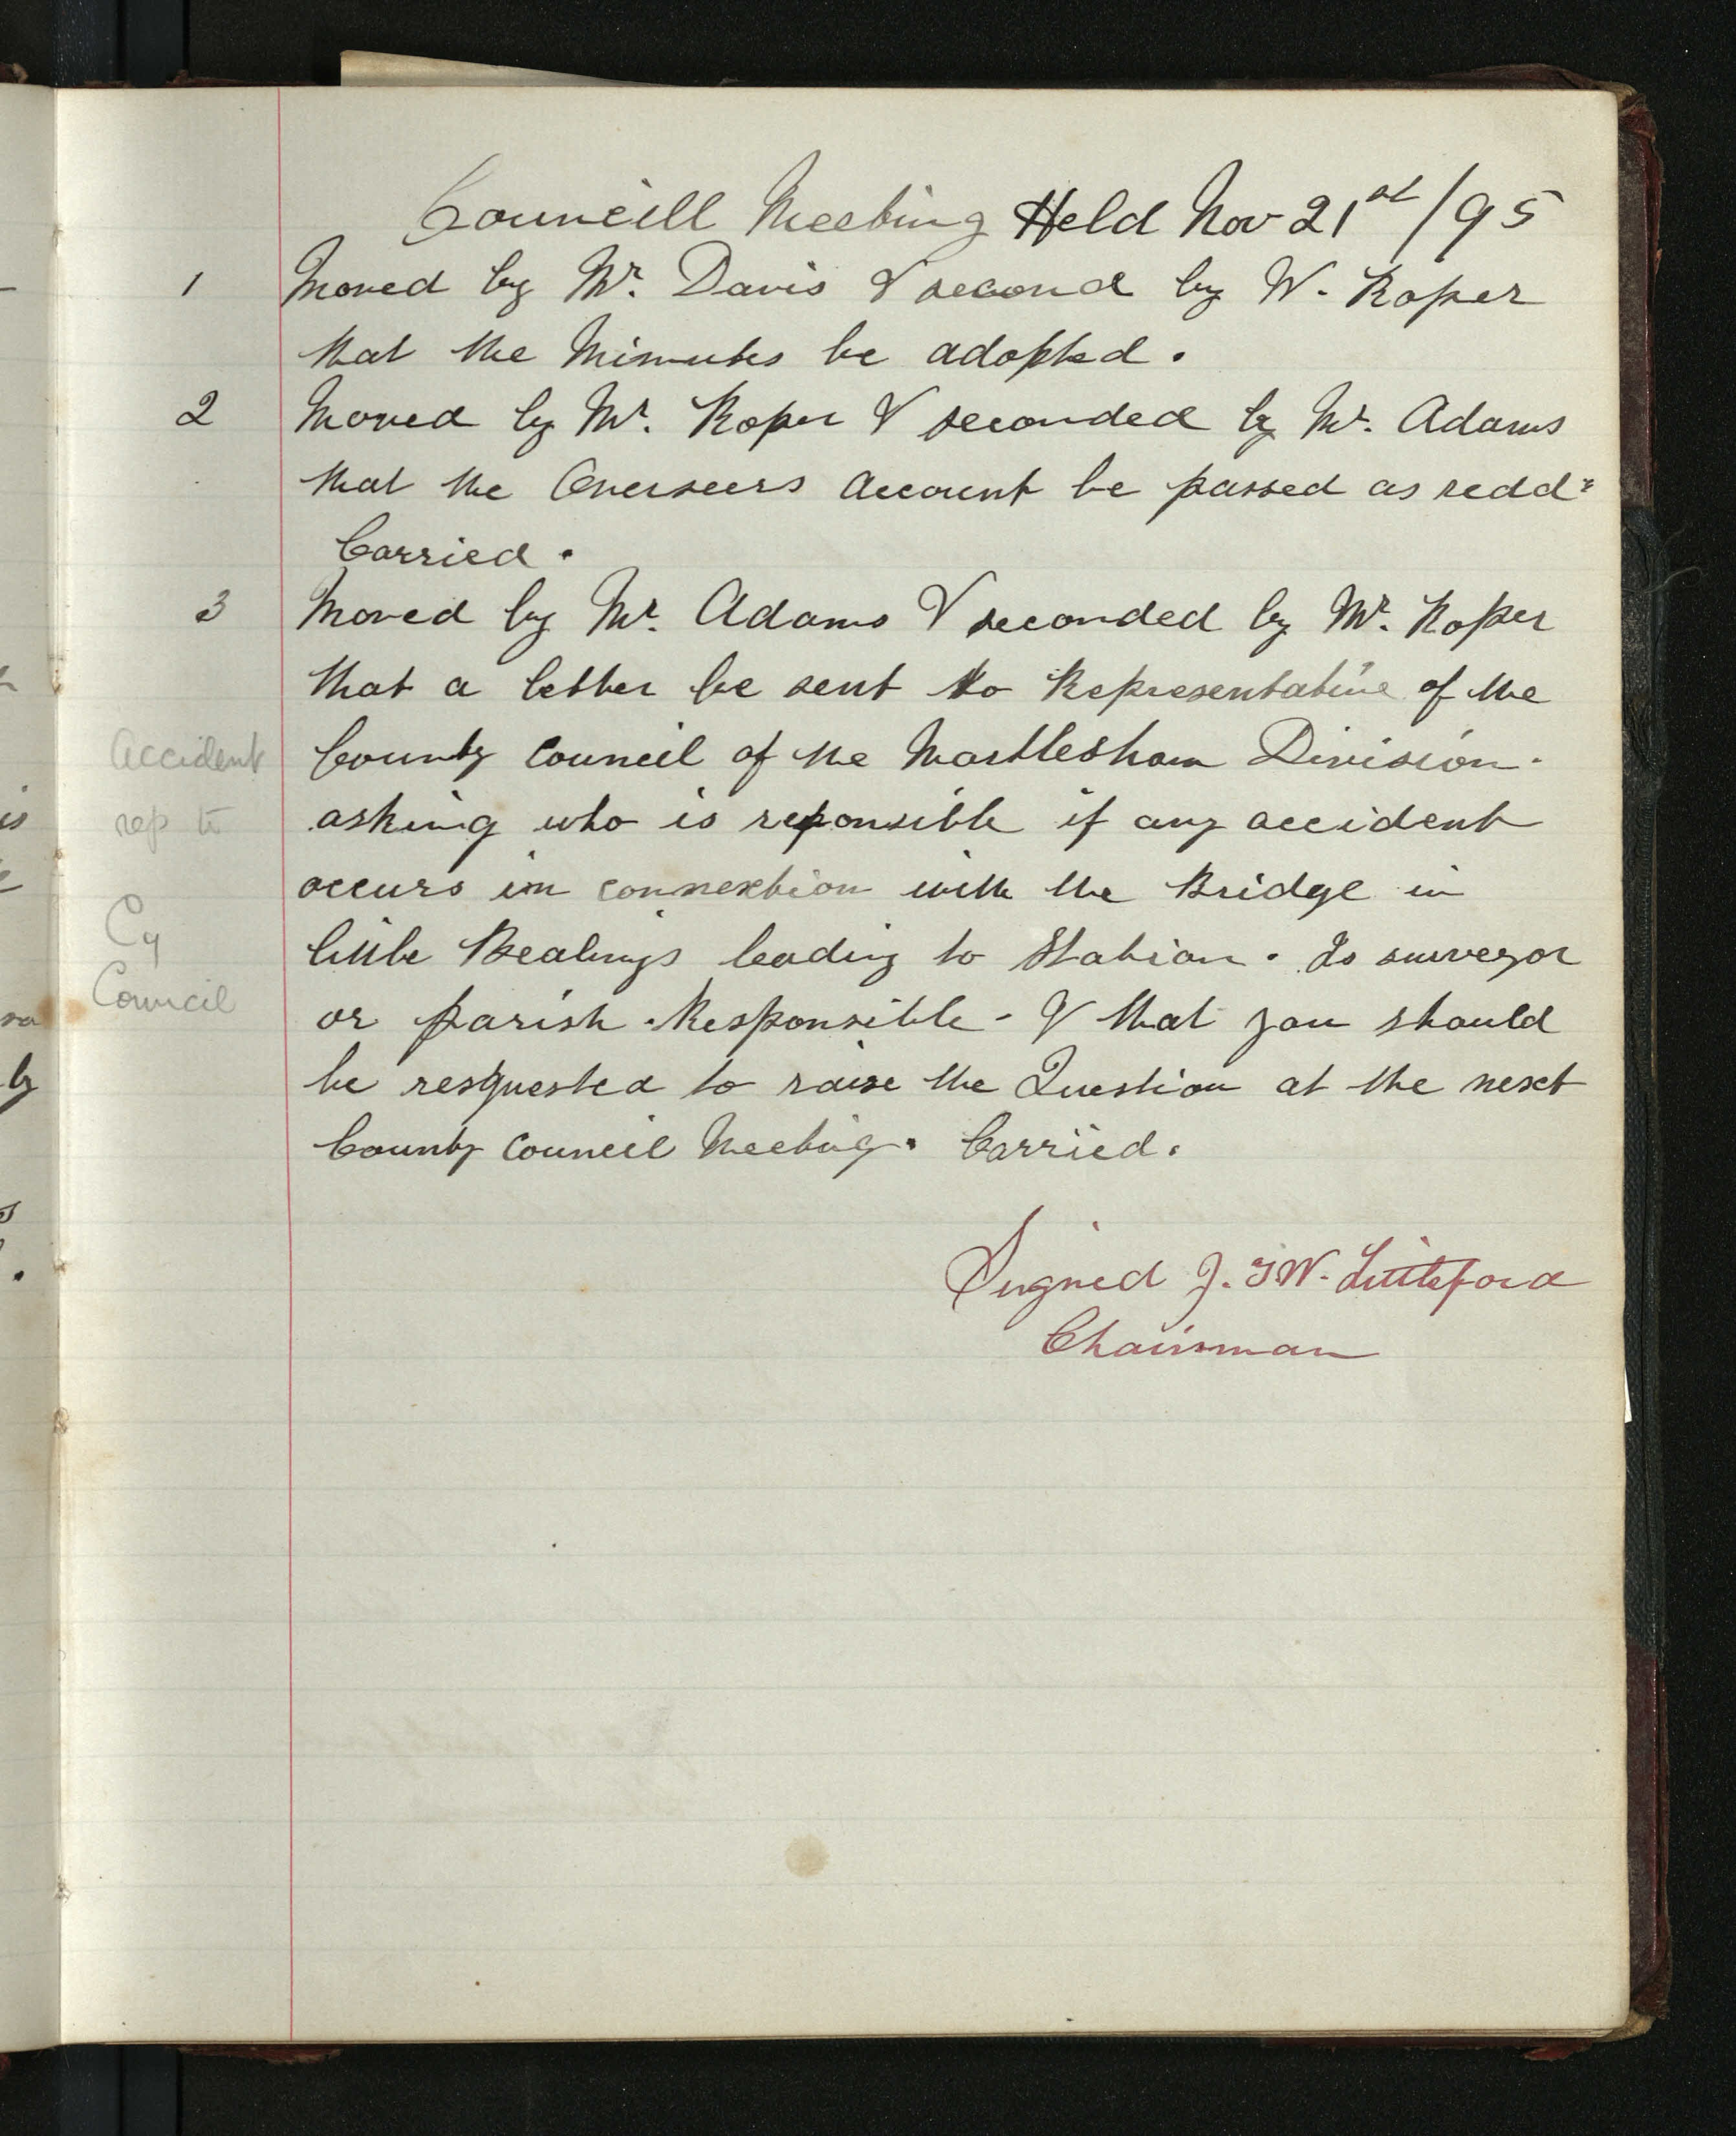 Councill Meeting Held Nov 21st/95
1 Moved by Mr. Davis & second by W. Roper
that the Minutes be adopted.
2 Moved by Mr. Roper & seconded by Mr. Adams
that the Overseers Account be passed as redd:
Carried.
3 Moved by Mr. Adams & seconded by Mr. Roper
that a letter be sent to Representative of the
County Council of the Martlesham Division.
asking who is reponsible if any accident
occurs in connextion with the Bridge in
little Bealings leading to Station. Is surveyor
or parish Responsible - & that you should
be resquested to raise the Question at the next
County Council Meeting. Carried.
Signed J. T W. Littleford
Chairman
Accident
rep to
Cy
Council